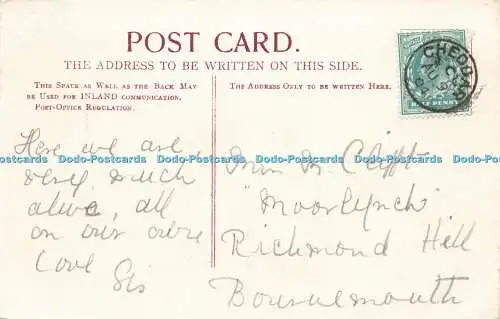 POST CARD.
THE ADDRESS TO BE WRITTEN ON THIS SIDE.
THIS SPACE AS WELL AS THE BACK MAY
BE USED FOR INLAND COMMUNICATION.
POST-OFFICE REGULATION.
THE ADDRESS ONLY TO BE WRITTEN HERE.
HALF PENNY
CHEDDAR
Here we are
very much
alive, all
on our
love
Sis
Dodo-Postcards Dodo-Postcards Dodo-Postcards Dodo-Postcards Dodo-Postcards
M. Clift
"Moorlynch"
Richmond Hill
Bournemouth